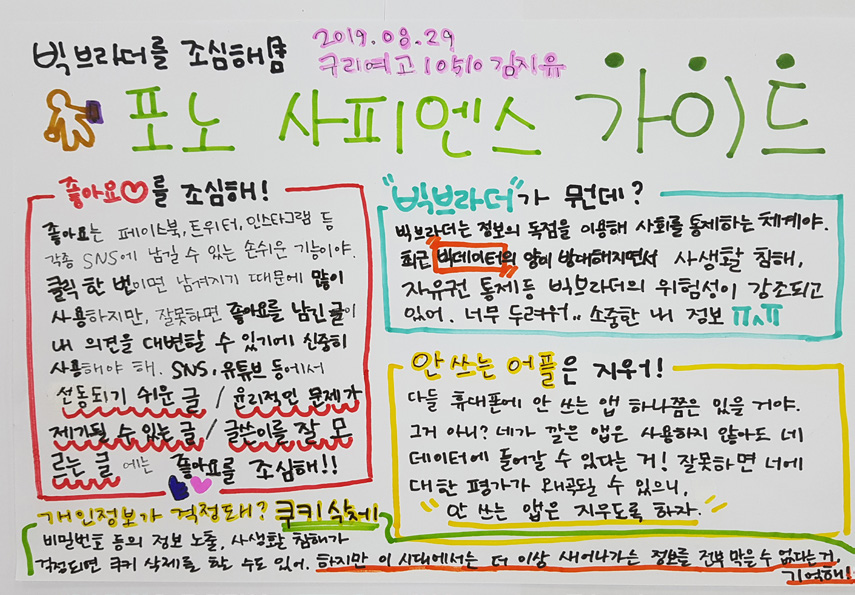 빅브라더를 조심해
2019.08.29
구리여고 10510 김지유
포노 사피엔스 가이드
좋아요♡를 조심해!
좋아요는 페이스북, 트위터, 인스타그램 등
각종 SNS에 남길 수 있는 손쉬운 기능이야.
클릭 한 번이면 남겨지기 때문에 많이
사용하지만, 잘못하면 좋아요를 남긴 글이
내 의견을 대변할 수 있기에 신중히
사용해야 해. SNS, 유튜브 등에서
선동되기 쉬운 글 / 윤리적인 문제가
제기될 수 있는 글 / 글쓴이를 잘 모
르는 글 에는 좋아요를 조심해!!
"빅브라더"가 뭔데?
빅브라더는 정보의 독점을 이용해 사회를 통제하는 체계야.
최근 "빅데이터의" 양이 방대해지면서 사생활 침해,
자유권 통제등 빅브라더의 위험성이 강조되고
있어. 너무 두려워.. 소중한 내 정보 ㅠㅅㅠ
안 쓰는 어플은 지우기!
다들 휴대폰에 안 쓰는 앱 하나쯤은 있을 거야.
그거 아니? 네가 깔은 앱은 사용하지 않아도 네
데이터에 들어갈 수 있다는 거! 잘못하면 너에
대한 평가가 왜곡될 수 있으니,
"안 쓰는 앱은 지우도록 하자."
개인정보가 걱정돼? 쿠키삭제
비밀번호 등의 정보 노출, 사생활 침해가
걱정되면 쿠키 삭제를 하는 수도 있어. 하지만 이 시대에서는 더 이상 새어나가는 정보를 전부 막을 수 없다는 것,
기억해!